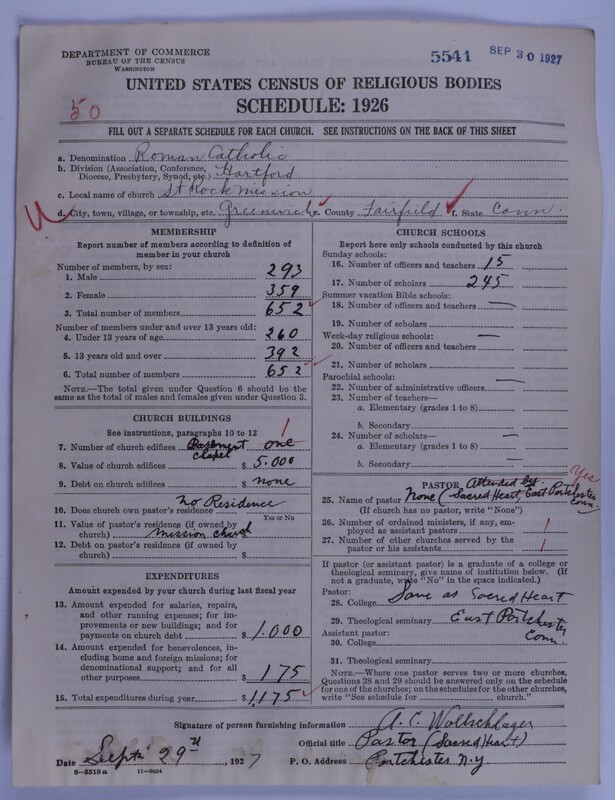 DEPARTMENT OF COMMERCE
BUREAU OF THE CENSUS
WASHINGTON
5541 SEP 30 1927
UNITED STATES CENSUS OF RELIGIOUS BODIES
SCHEDULE: 1926
50
FILL OUT A SEPARATE SCHEDULE FOR EACH CHURCH. SEE INSTRUCTIONS ON THE BACK OF THIS SHEET
a. Denomination Roman Catholic
b. Division (Association, Conference, Diocese, Presbytery, Synod, etc.) Hartford
c. Local name of church St Rock Mission
d. City, town, village, or township, etc. Greenwich e. County Fairfield f. State Conn
MEMBERSHIP
Report number of members according to definition of
member in your church
Number of members, by sex:
1. Male 293
2. Female 359
3. Total number of members 652
Number of members under and over 13 years old:
4. Under 13 years of age 260
5. 13 years old and over 392
6. Total number of members 652
NOTE.—The total given under Question 6 should be the
same as the total of males and females given under Question 3.
CHURCH BUILDINGS
See instructions, paragraphs 10 to 12
1
7. Number of church edifices Basement chapel one
8. Value of church edifices $ 5.000
9. Debt on church edifices $ none
No Residence
10. Does church own pastor's residence?
Yes or No
11. Value of pastor's residence (if owned by
church) mission church $
12. Debt on pastor's residence (if owned by
church) $
EXPENDITURES
Amount expended by your church during last fiscal year
13. Amount expended for salaries, repairs,
and other running expenses; for im-
provements or new buildings; and for
payments on church debt $ 1.000
14. Amount expended for benevolences, in-
cluding home and foreign missions; for
denominational support; and for all
other purposes $ 175
15. Total expenditures during year $ 1,175
CHURCH SCHOOLS
Report here only schools conducted by this church
Sunday schools:
16. Number of officers and teachers 15
17. Number of scholars 245
Summer vacation Bible schools:
18. Number of officers and teachers —
19. Number of scholars
Week-day religious schools: —
20. Number of officers and teachers
21. Number of scholars
Parochial schools: —
22. Number of administrative officers
23. Number of teachers—
a. Elementary (grades 1 to 8)
b. Secondary
24. Number of scholars—
a. Elementary (grades 1 to 8)
b. Secondary
Yes
PASTOR Attended by
25. Name of pastor None (Sacred Heart, East Portchester Conn.
(If church has no pastor, write "None")
26. Number of ordained ministers, if any, em-
ployed as assistant pastors 1
27. Number of other churches served by the
pastor or his assistants 1
If pastor (or assistant pastor) is a graduate of a college or
theological seminary, give name of institution below. (If
not a graduate, write "No" in the space indicated.)
Pastor:
28. College Same as Sacred Heart
29. Theological seminary East Portchester
Assistant pastor: Conn.
30. College
31. Theological seminary
NOTE.—Where one pastor serves two or more churches,
Questions 28 and 29 should be answered only on the schedule
for one of the churches; on the schedules for the other churches,
write "See schedule for church."
Signature of person furnishing information A. C. Wollschlager
Official title Pastor (Sacred Heart)
Date Sept 29th, 1927 P. O. Address Portchester N.Y
8—5518a 11—9034